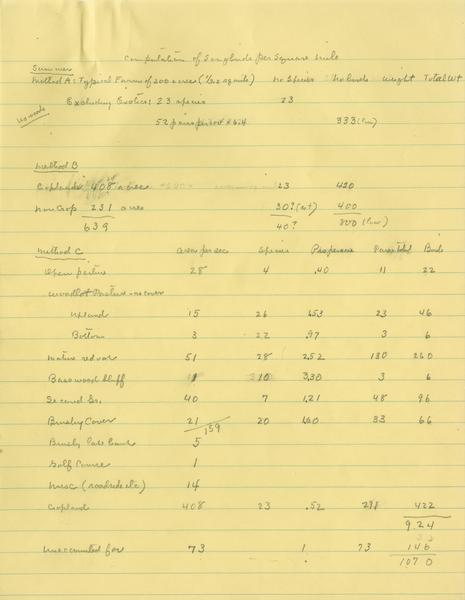 Computation of Songbirds per Square mile
Summer
Method A: Typical Farm of 200 acres ( sq mile) no Species no birds weight Total Wt
Excluding Exotics: 23 species 23
no woods
52 pairs per x 6.4 333 (low)
Method B
Cropland 408 acres 23 420
non Crop 231 acres 30? (est) 400
639 40? 800 (low)
Method C acres per sec Species Pairs per acre Pairs total Birds
Open pasture 28 4 .40 11 22
Woodlot Pasture - no cover
Upland 15 26 1.53 23 46
Bottom 3 22 .97 3 6
mature red oak 51 28 2.52 130 260
Basswood bluff 1 10 3.30 3 6
Second Gr. 40 7 1.21 48 96
Brushy Cover 21 20 1.60 33 66
159
Brushy Lake bank 5
Golf Course 1
misc (roadside etc) 14
Cropland 408 23 .52 211 422
924
unaccounted for 73 1 73 146
1070